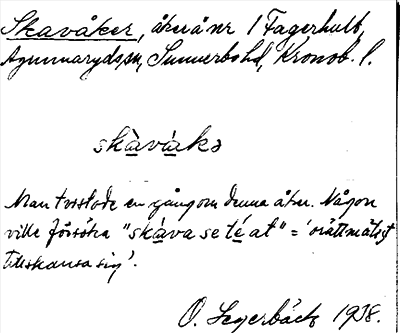 Skavåker, åker å nr 1 Fagerhult,
Agunnaryds sn, Sunnerbo hd, Kronob. l.
skàvákɘ
Man tvistade en gång om denna åker. Någon
ville försöka "skàva se té at" = 'orättmätigt
tillskansa sig'.
O. Segerbäck 1938.